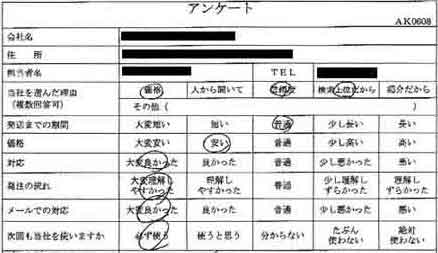 アンケート
AK0608
会社名
住 所
担当者名 TEL
当社を選んだ理由 価格 人から聞いて 検索上位だから 紹介だから
(複数回答可) その他 ( )
発送までの期間 大変短い 短い 普通 少し長い 長い
価格 大変安い 安い 普通 少し高い 高い
対応 大変良かった 良かった 普通 少し悪かった 悪い
発注の流れ 大変理解しやすかった 理解しやすかった 普通 少し理解しずらかった 理解しずらかった
メールでの対応 大変良かった 良かった 普通 少し悪かった 悪い
次回も当社を使いますか 必ず使う 使うと思う 分からない たぶん使わない 絶対使わない